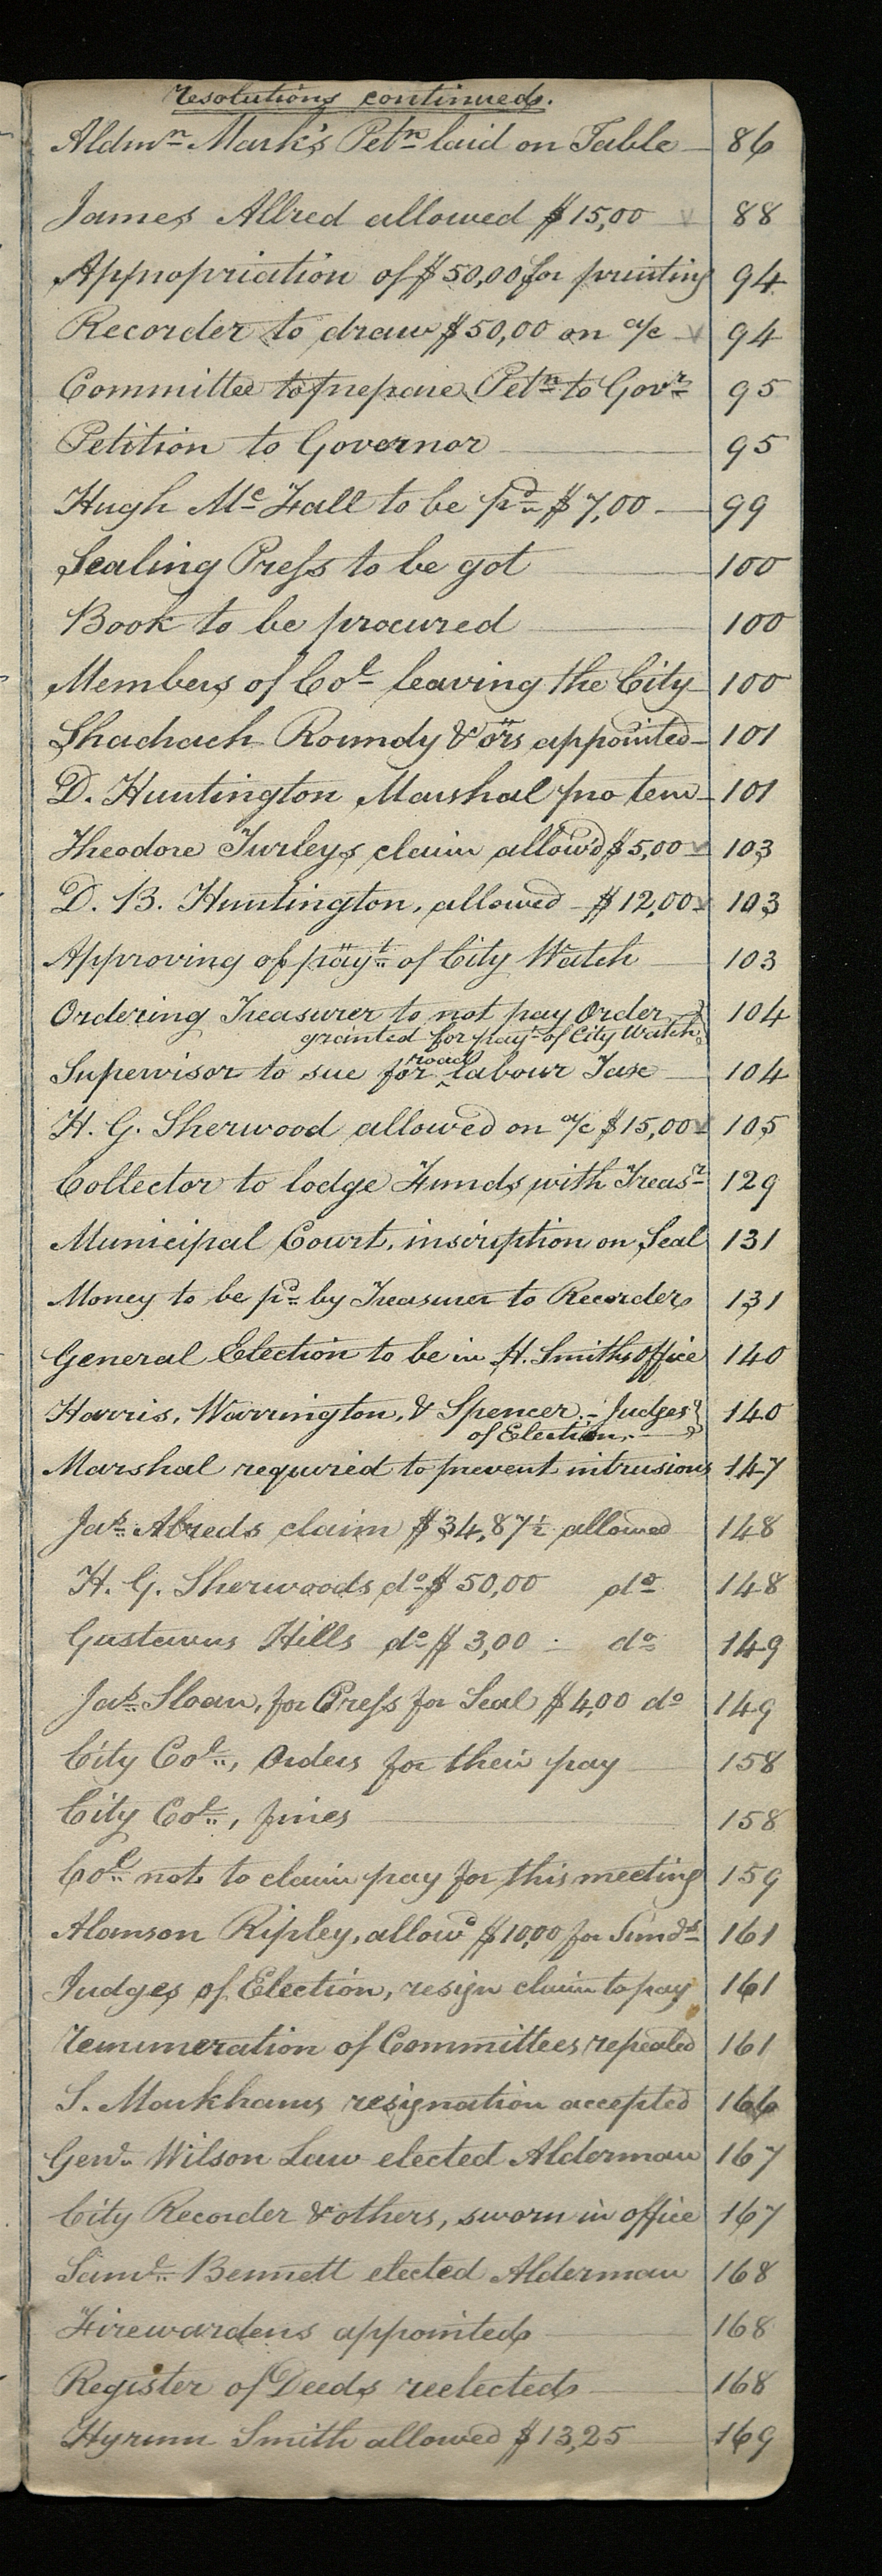 resolutions continued.
Aldmn Mark's Petn laid on Table — 86
James Allred allowed $15,00 88
Appropriation of $50,00 for printing 94
Recorder to draw $50,00 on a/c 94
Committee to prepare Petn to Govr 95
Petition to Governor 95
Hugh Mc Fall to be pd $7,00 — 99
Sealing Press to be got 100
Book to be procured 100
Members of Col leaving the City 100
Shadrach Roundy & ors appointed 101
D. Huntington Marshal pro tem 101
Theodore Turleys claim allow'd $5,00 103
D. B. Huntington, allowed $12,00 103
Approving of payt of City Watch 103
Ordering Treasurer to not pay Order 104
granted for payt of City Watch
road
Supervisor to sue for ‸ labour Tax 104
H. G. Sherwood allowed on a/c $15,00 105
Collector to lodge Funds with Treasr 129
Municipal Court, inscription on Seal 131
Money to be pd by Treasurer to Recorder 131
General Election to be in H. Smiths office 140
Harris, Warrington, & Spencer, - Judges 140
of Election.
Marshal required to prevent intrusions 147
Jas Alreds claim $34,87½ allowed 148
H. G. Sherwoods do $50,00 do 148
Gustavus Hills do $3,00 do 149
Jas Sloan, for Press for Seal $4,00 do 149
City Col, Orders for their pay 158
City Col, fines 158
Col not to claim pay for this meeting 159
Alanson Ripley, allowd $10,00 for Sunds 161
Judges of Election, resign claim to pay 161
remuneration of Committees repealed 161
S. Markhams resignation accepted 166
Genl Wilson Law elected Alderman 167
City Recorder & others, sworn in office 167
Saml Bennett elected Alderman 168
Firewardens appointed 168
Register of Deeds reelected 168
Hyrum Smith allowed $13,25 169